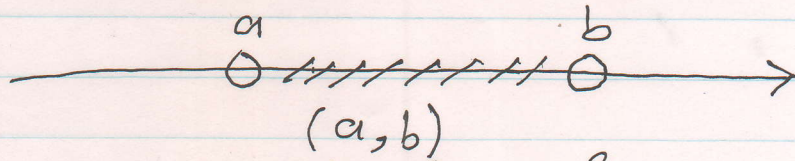 a b
(a,b)